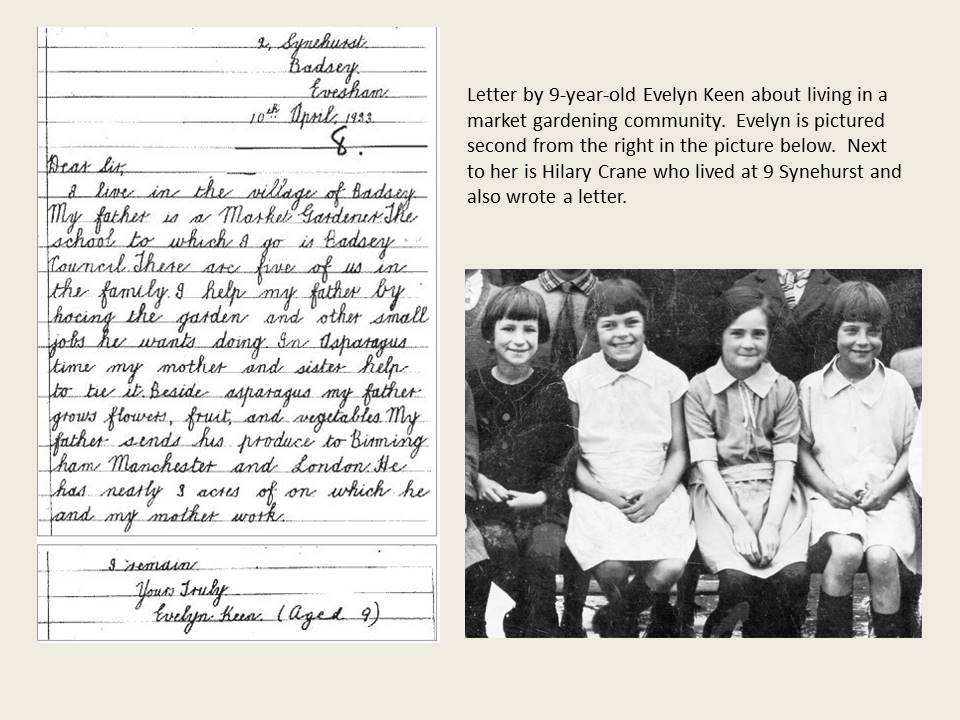 2, Synehurst.
Badsey.
Evesham.
10th April, 1933.
8.
Dear Sir,
I live in the village of Badsey.
My father is a Market Gardener. The
school to which I go is Badsey
Council. There are five of us in
the family. I help my father by
hoeing the garden and other small
jobs he wants doing. In Asparagus
time my mother and sister help
to tie it. Beside asparagus my father
grows flowers, fruit, and vegetables. My
father sends his produce to Birming
ham Manchester and London. He
has nearly 3 acres of on which he
and my mother work.
I remain
Yours Truly
Evelyn Keen. (Aged 9)
Letter by 9-year-old Evelyn Keen about living in a
market gardening community.  Evelyn is pictured
second from the right in the picture below.  Next
to her is Hilary Crane who lived at 9 Synehurst and
also wrote a letter.